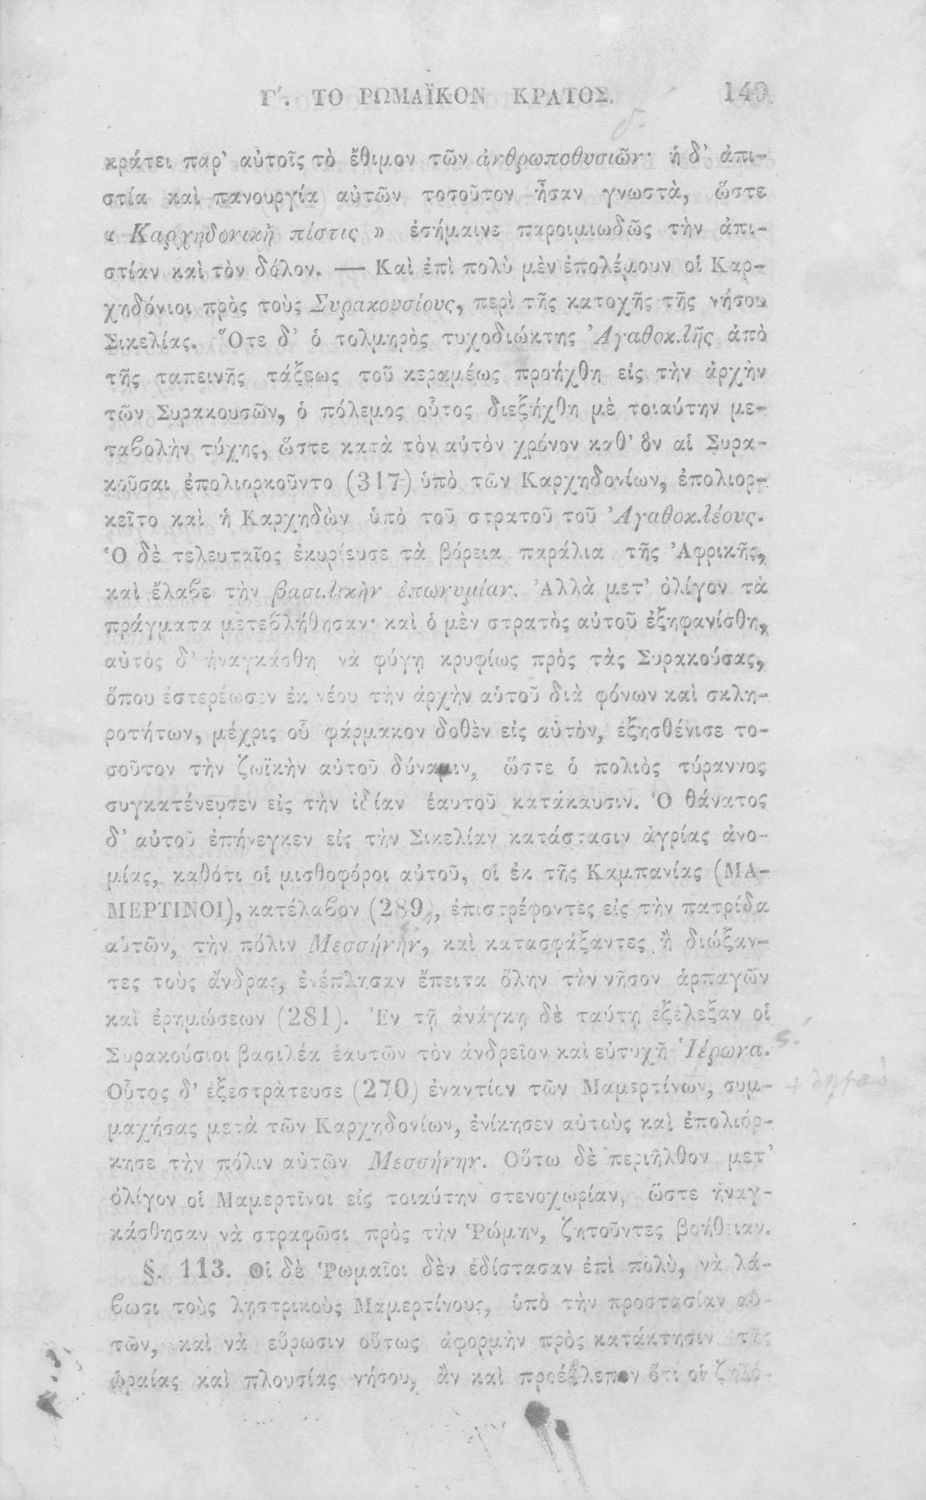 Γʹ. ΤΟ ΡΩΜΑΪΚΟΝ ΚΡΑΤΟΣ. 149
κράτει παρ' αὐτοῖς τὸ ἔθιμον τῶν ἀνθρωποθυσιῶν· ἡ δ' ἀπι-
στία καὶ πανουργία αὐτῶν τοσοῦτον ἦσαν γνωστὰ, ὥστε
« Καρχηδονικὴ πίστις » ἐσήμαινε παροιμιωδῶς τὴν ἀπι-
στίαν καὶ τὸν δόλον. — Καὶ ἐπὶ πολὺ μὲν ἐπολέμουν οἱ Καρ-
χηδόνιοι πρὸς τοὺς Συρακουσίους, περὶ τῆς κατοχῆς τῆς νήσου
Σικελίας. Ὅτε δ' ὁ τολμηρὸς τυχοδιώκτης Ἀγαθοκλῆς ἀπὸ
τῆς ταπεινῆς τάξεως τοῦ κεραμέως προήχθη εἰς τὴν ἀρχὴν
τῶν Συρακουσῶν, ὁ πόλεμος οὗτος διεξήχθη μὲ τοιαύτην με-
ταβολὴν τύχης, ὥστε κατὰ τὸν αὐτὸν χρόνον καθ' ὃν αἱ Συρα-
κοῦσαι ἐπολιορκοῦντο (317) ὑπὸ τῶν Καρχηδονίων, ἐπολιορ-
κεῖτο καὶ ἡ Καρχηδὼν ὑπὸ τοῦ στρατοῦ τοῦ Ἀγαθοκλέους.
Ὁ δὲ τελευταῖος ἐκυρίευσε τὰ βόρεια παράλια τῆς Ἀφρικῆς,
καὶ ἔλαβε τὴν βασιλικὴν ἐπωνυμίαν. Ἀλλὰ μετ' ὀλίγον τὰ
πράγματα μετεβλήθησαν· καὶ ὁ μὲν στρατὸς αὐτοῦ ἐξηφανίσθη,
αὐτὸς δ' ἠναγκάσθη νὰ φύγῃ κρυφίως πρὸς τὰς Συρακούσας,
ὅπου ἐστερέωσεν ἐκ νέου τὴν ἀρχὴν αὑτοῦ διὰ φόνων καὶ σκλη-
ροτήτων, μέχρις οὗ φάρμακον δοθὲν εἰς αὐτὸν, ἐξησθένισε το-
σοῦτον τὴν ζωϊκὴν αὐτοῦ δύναμιν, ὥστε ὁ πολιὸς τύραννος
συγκατένευσεν εἰς τὴν ἰδίαν ἑαυτοῦ κατάκαυσιν. Ὁ θάνατος
δ' αὐτοῦ ἐπήνεγκεν εἰς τὴν Σικελίαν κατάστασιν ἀγρίας ἀνο-
μίας, καθότι οἱ μισθοφόροι αὐτοῦ, οἱ ἐκ τῆς Καμπανίας (ΜΑ-
ΜΕΡΤΙΝΟΙ), κατέλαβον (289), ἐπιστρέφοντες εἰς τὴν πατρίδα
αὑτῶν, τὴν πόλιν Μεσσήνην, καὶ κατασφάξαντες ἢ διώξαν-
τες τοὺς ἄνδρας, ἐνέπλησαν ἔπειτα ὅλην τὴν νῆσον ἁρπαγῶν
καὶ ἐρημώσεων (281). Ἐν τῇ ἀνάγκῃ δὲ ταύτῃ ἐξέλεξαν οἱ
Συρακούσιοι βασιλέα ἑαυτῶν τὸν ἀνδρεῖον καὶ εὐτυχῆ Ἱέρωνα.
Οὗτος δ' ἐξεστράτευσε (270) ἐναντίον τῶν Μαμερτίνων, συμ-
μαχήσας μετὰ τῶν Καρχηδονίων, ἐνίκησεν αὐτοὺς καὶ ἐπολιόρ-
κησε τὴν πόλιν αὐτῶν Μεσσήνην. Οὕτω δὲ περιῆλθον μετ'
ὀλίγον οἱ Μαμερτῖνοι εἰς τοιαύτην στενοχωρίαν, ὥστε ἠναγ-
κάσθησαν νὰ στραφῶσι πρὸς τὴν Ῥώμην, ζητοῦντες βοήθειαν.
§. 113. Οἱ δὲ Ῥωμαῖοι δὲν ἐδίστασαν ἐπὶ πολὺ, νὰ λά-
βωσι τοὺς ληστρικοὺς Μαμερτίνους, ὑπὸ τὴν προστασίαν αὑ-
τῶν, καὶ νὰ εὕρωσιν οὕτως ἀφορμὴν πρὸς κατάκτησιν τῆς
ὡραίας καὶ πλουσίας νήσου, ἂν καὶ προέβλεπον ὅτι οἱ ζηλό-